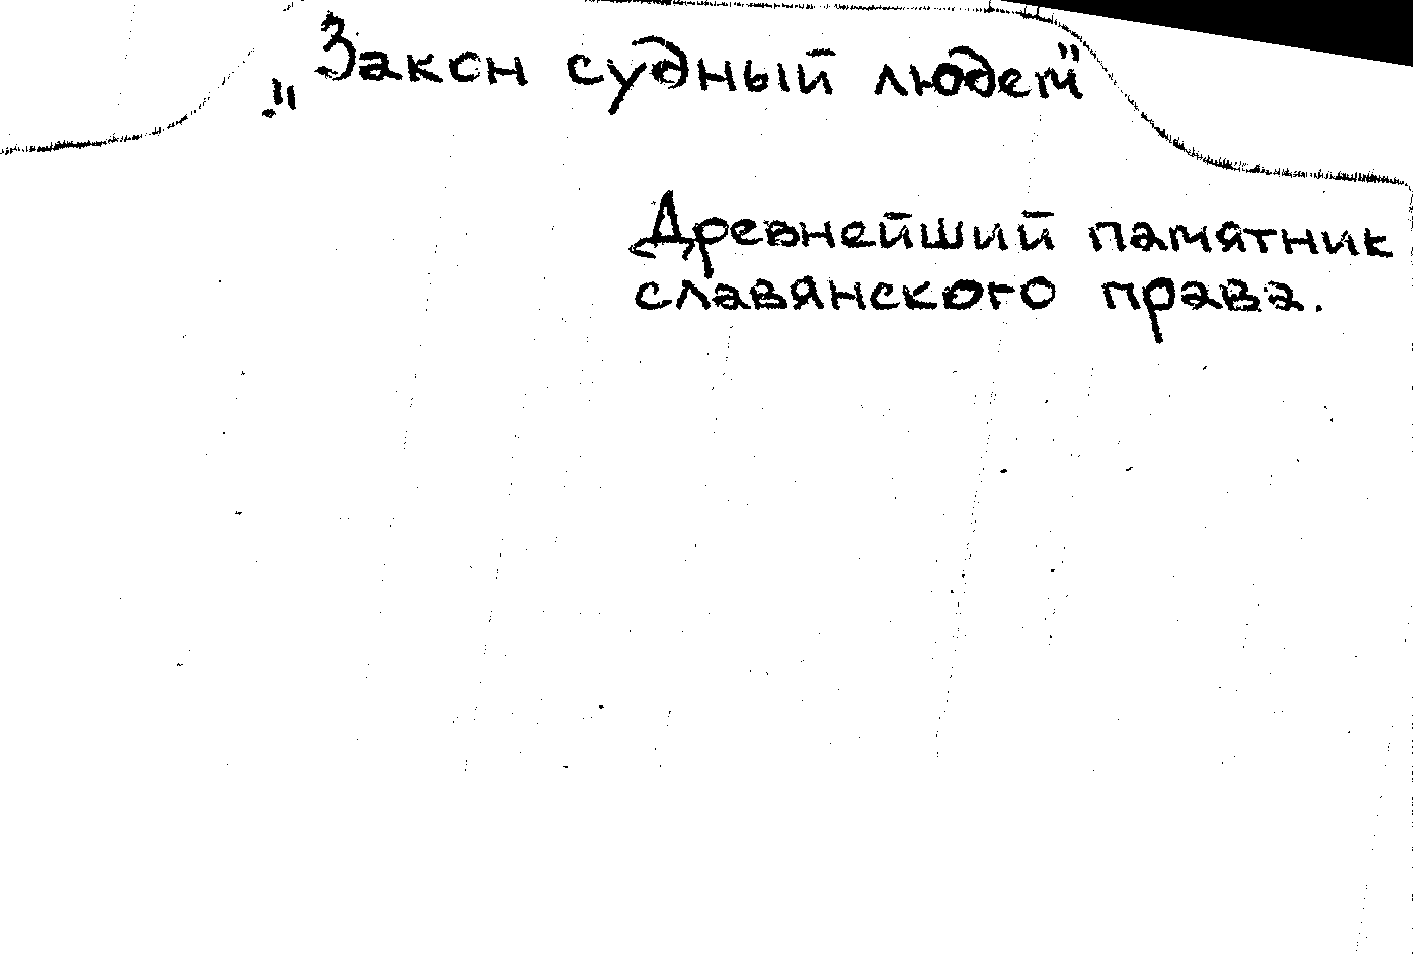 „Закон судный людем"
Древнейший памятник
славянского права.